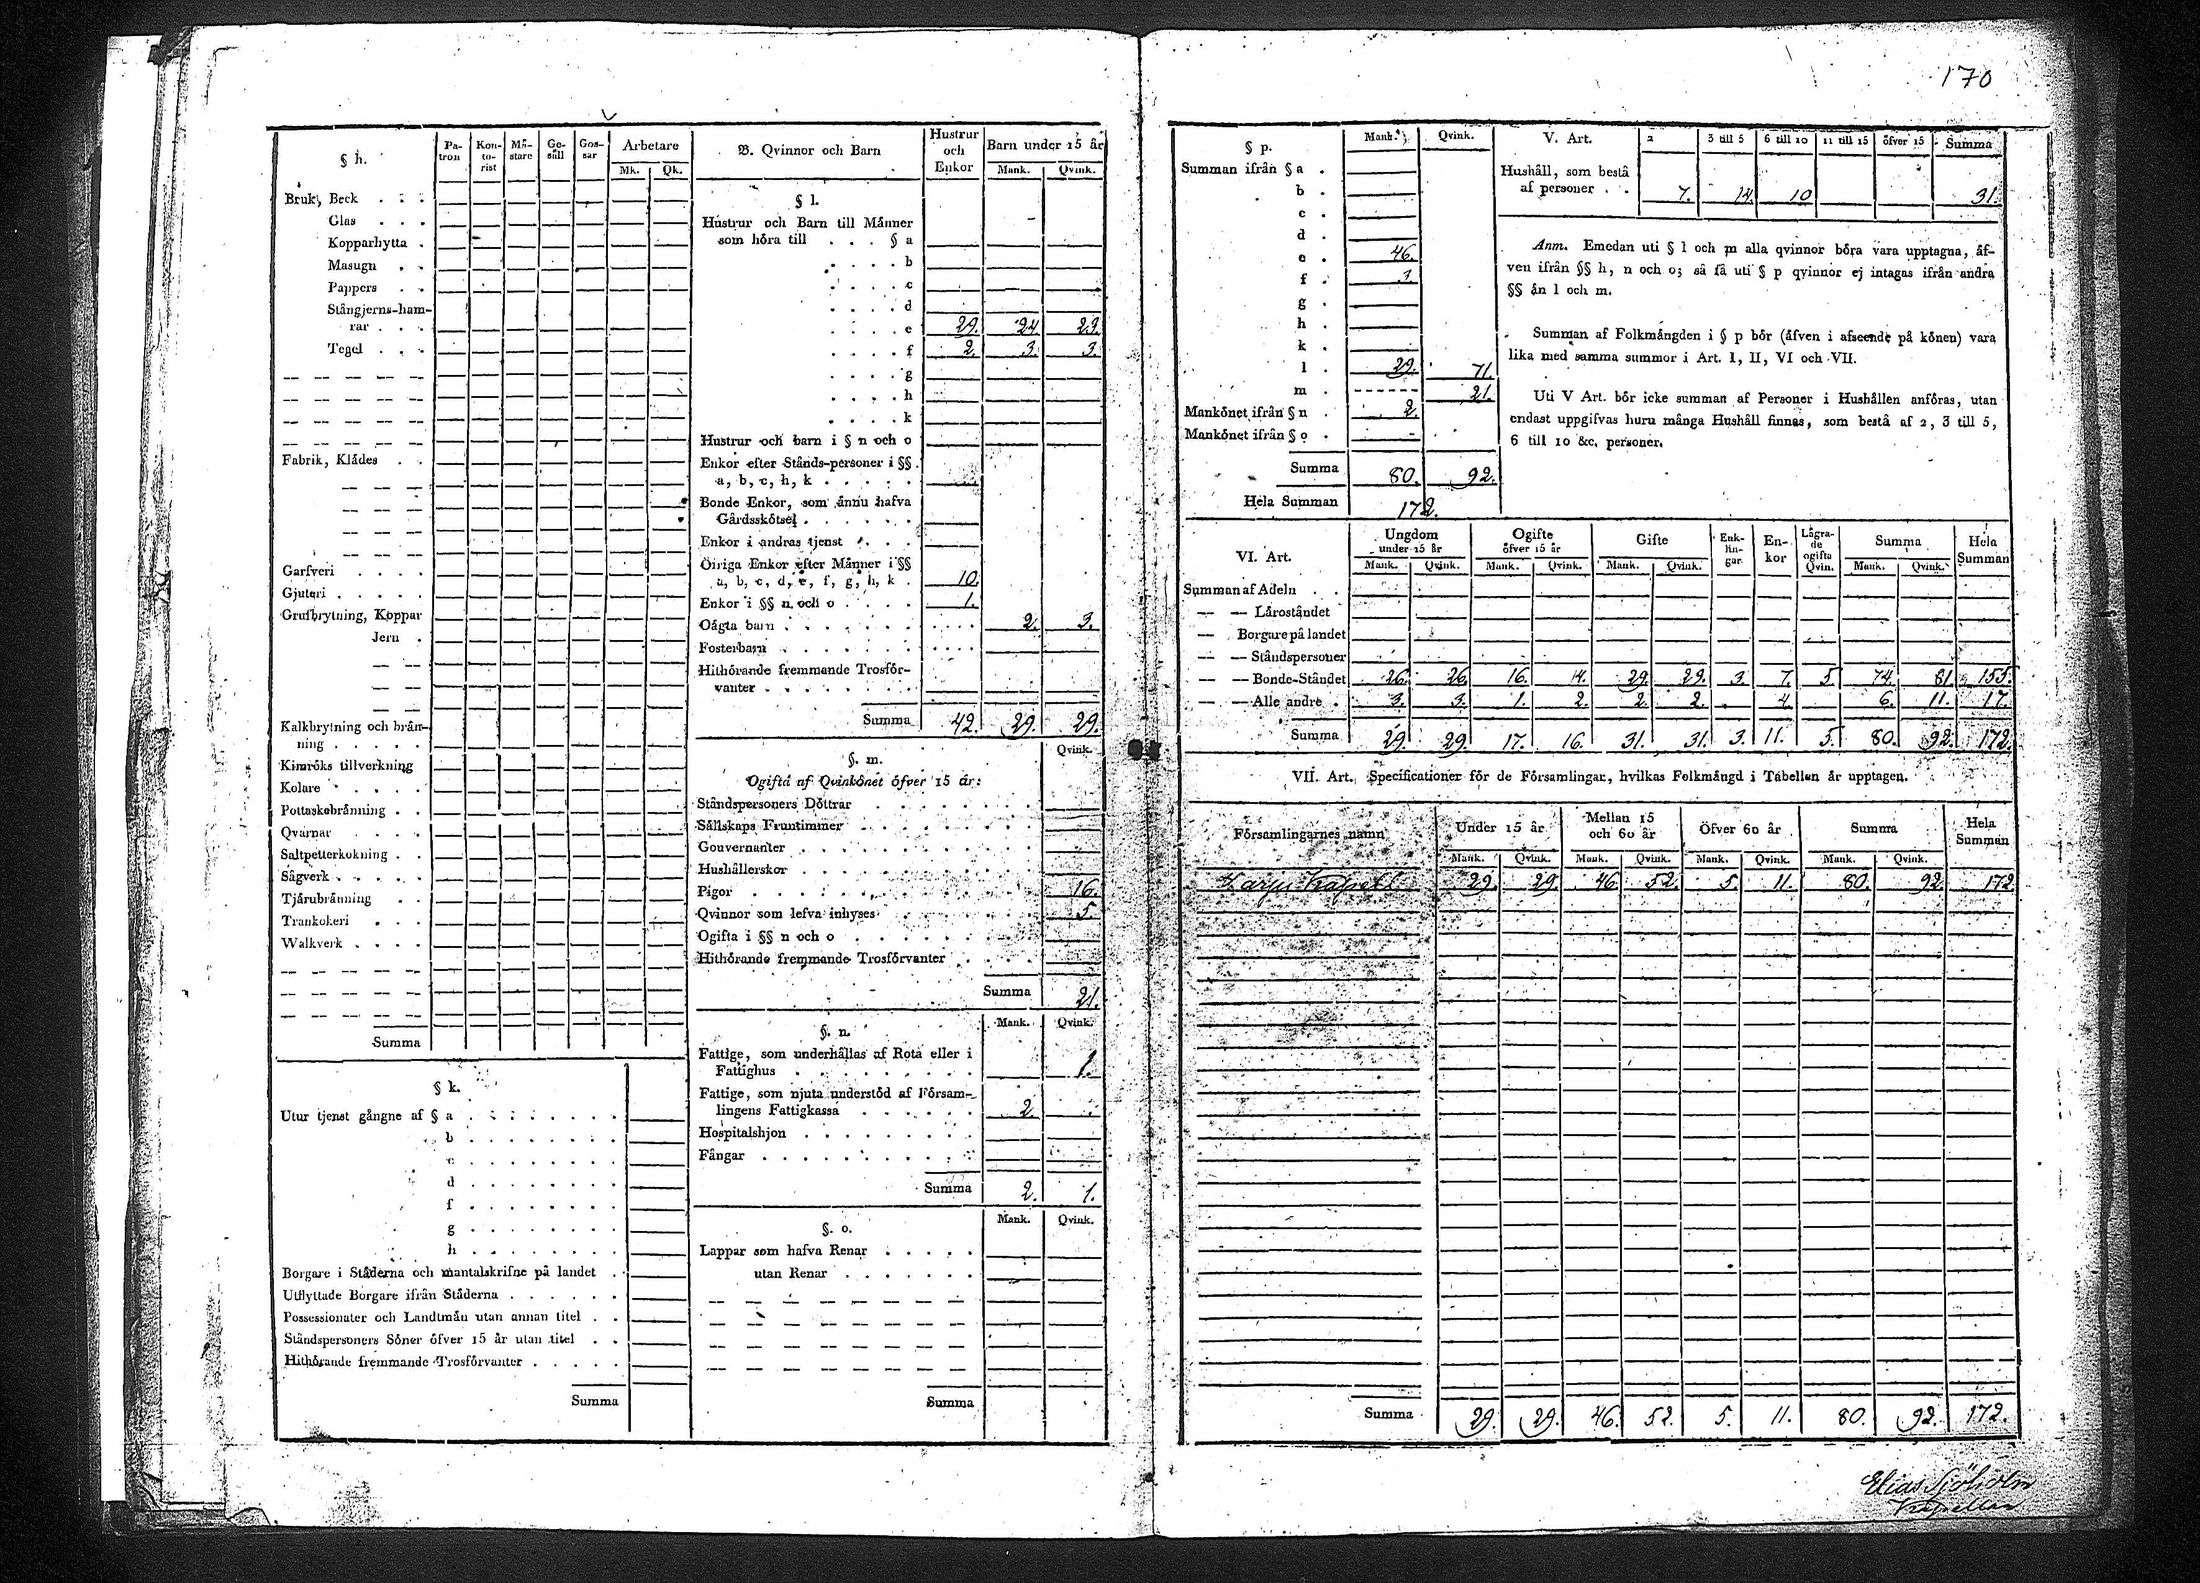 170
§ h.
Pa-tron Kon-to-rist Mä-stare Ge-säll Gos-sar Arbetare
Mk. Qk.
Bruk, Beck . . .
Glas . . .
Kopparhytta .
Masugn . .
Pappers . .
Stångjerns-ham-
rar . . .
Tegel . . .
Fabrik, Klådes . .
Garfveri . . . .
Gjuteri . . . . .
Grufbrytning, Koppar
Jern .
Kalkbrytning och brån-
ning . . . . .
Kimröks tillverkning
Kolare . . . . .
Pottaskebrånning . .
Qvarnar . . . .
Saltpetterkokning . .
Sågverk . . . . .
Tjårubrånning . .
Trankokeri . . .
Walkverk . . . .
Summa
§ k.
Utur tjenst gångne af § a . . . . . . .
b . . . . . . .
c . . . . . . .
d . . . . . . .
f . . . . . . .
g . . . . . . .
h . . . . . . .
Borgare i Ståderna och mantalskrifne på landet .
Utflyttade Borgare ifrån Ståderna . . . . . .
Possessionater och Landtmån utan annan titel . .
Ståndspersoners Söner öfver 15 år utan titel . .
Hithörande fremmande Trosförvanter . . . . .
Summa
B. Qvinnor och Barn Hustrur och Enkor Barn under 15 år
Mank. Qvink.
§ l.
Hustrur och Barn till Månner
som höra till . . . § a
. . . . b
. . . . c
. . . . d
. . . . e 29. 24 23.
. . . . f 2. 3. 3.
. . . . g
. . . . h
. . . . k
Hustrur och barn i § n och o
Enkor efter Stånds-personer i §§
a, b, c, h, k . . . . .
Bonde Enkor, som ånnu hafva
Gårdsskötsel . . . . . .
Enkor i andras tjenst . . .
Öfriga Enkor efter Månner i §§
a, b, c, d, e, f, g, h, k . 10.
Enkor i §§ n och o . . . . 1.
Oågta barn . . . . . . . . . . . 2. 3.
Fosterbarn . . . . . . . . . . .
Hithörande fremmande Trosför-
vanter . . . . . . . .
Summa 42. 29. 29.
§. m. Qvink.
Ogifta af Qvinkönet öfver 15 år:
Ståndspersoners Döttrar . . . . . . .
Sållskaps Fruntimmer . . . . . . . .
Gouvernanter . . . . . . . . . .
Hushållerskor . . . . . . . . . .
Pigor . . . . . . . . . . . . 16.
Qvinnor som lefva inhyses . . . . . . 5.
Ogifta i §§ n och o . . . . . . . .
Hithörande fremmande Trosförvanter . . .
Summa 21.
§. n. Mank. Qvink.
Fattige, som underhållas af Rota eller i
Fattighus . . . . . . . . . 1.
Fattige, som njuta understöd af Försam-
lingens Fattigkassa . . . . . . 2.
Hospitalshjon . . . . . . . . .
Fångar . . . . . . . . . . .
Summa 2. 1.
§. o. Mank. Qvink.
Lappar som hafva Renar . . . . .
utan Renar . . . . . . .
Summa
§ p. Mank. Qvink.
Summan ifrån § a .
b .
c .
d .
e . 46.
f . 3.
g .
h .
k .
l . 29. 71.
m . 21.
Mankönet ifrån § n . 2.
Mankönet ifrån § o .
Summa 80. 92.
Hela Summan 172.
V. Art. 2 3 till 5 6 till 10 11 till 15 öfver 15 Summa
Hushåll, som bestå
af personer . . 7. 14. 10 31.
Anm. Emedan uti § l och m alla qvinnor böra vara upptagna, åf-
ven ifrån §§ h, n och o; så få uti § p qvinnor ej intagas ifrån andra
§§ ån l och m.
Summan af Folkmångden i § p bör (åfven i afseende på könen) vara
lika med samma summor i Art. I, II, VI och VII.
Uti V Art. bör icke summan af Personer i Hushållen anföras, utan
endast uppgifvas huru många Hushåll finnas, som bestå af 2, 3 till 5,
6 till 10 &c. personer.
VI. Art. Ungdom under 15 år Ogifte öfver 15 år Gifte Enk-lin-gar. En-kor Lågra-de ogifta Qvin. Summa Hela Summan
Mank. Qvink. Mank. Qvink. Mank. Qvink. Mank. Qvink.
Summan af Adeln . .
— — Låroståndet
— Borgare på landet
— — Ståndspersoner
— — Bonde-Ståndet 26. 26. 16. 14. 29. 29. 3. 7. 5. 74. 81. 155.
— — Alle andre . 3. 3. 1. 2. 2. 2. 4. 6. 11. 17.
Summa 29. 29. 17. 16. 31. 31. 3. 11. 5. 80. 92. 172.
VII. Art. Specificationer för de Församlingar, hvilkas Folkmångd i Tabellen år upptagen.
Församlingarnes namn Under 15 år Mellan 15 och 60 år Öfver 60 år Summa Hela Summan
Mank. Qvink. Mank. Qvink. Mank. Qvink. Mank. Qvink.
Kapell 29. 29. 46. 52. 5. 11. 80. 92. 172
Summa 29. 29. 46. 52. 5. 11. 80. 92. 172.
Elias Sjöholm
Kapellan